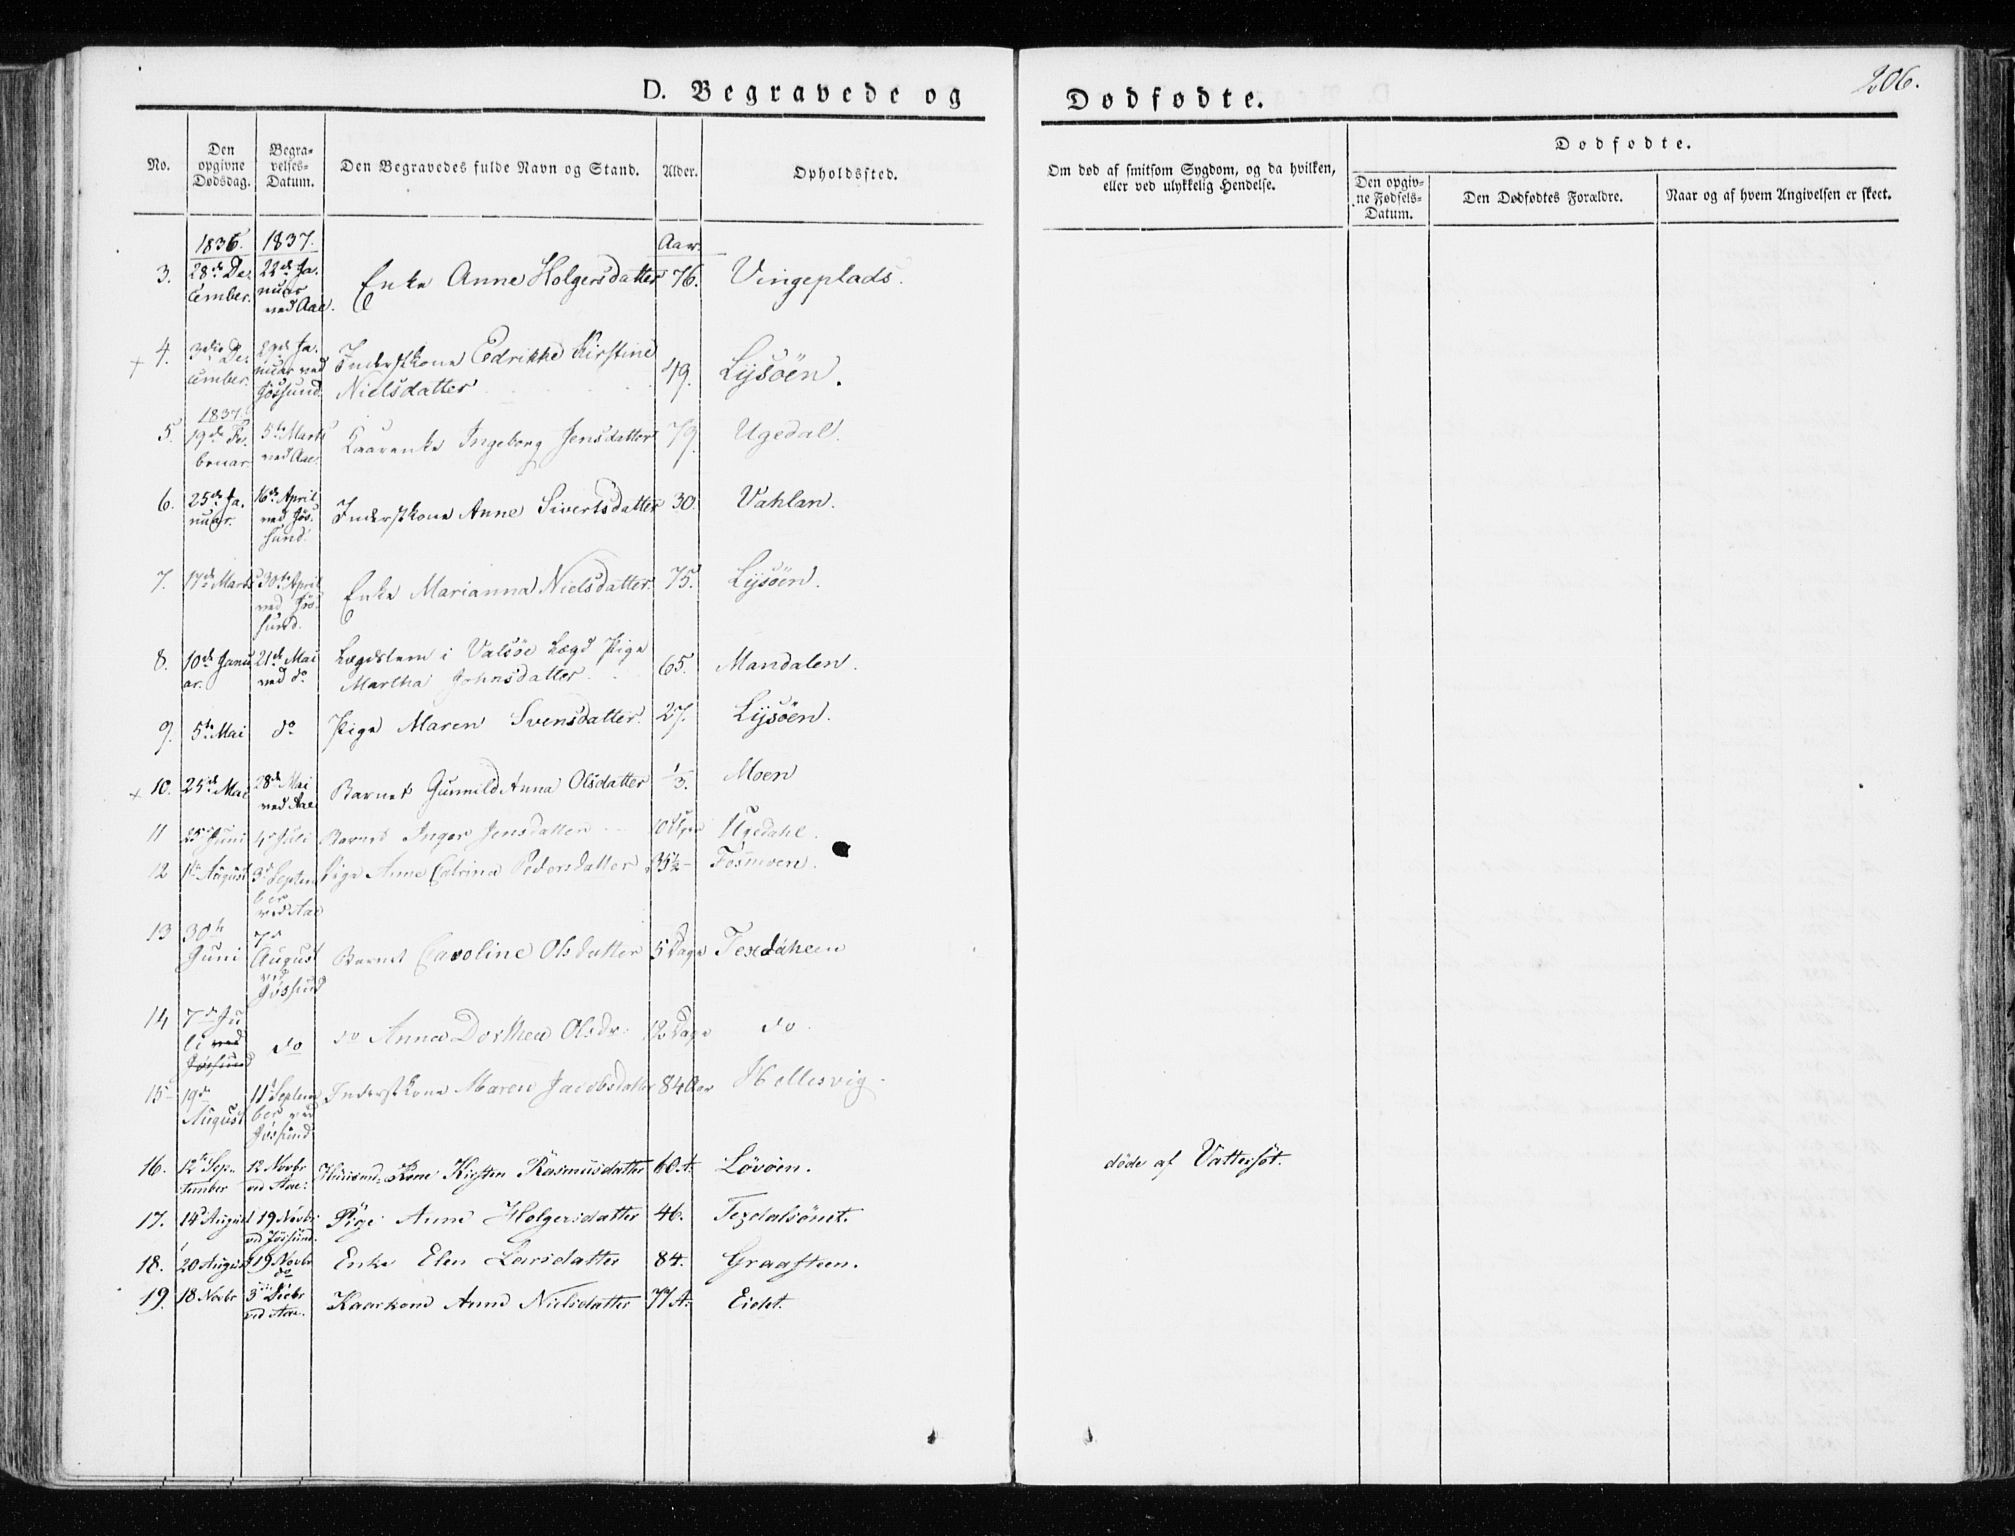 206.
D. Begravede og Dødfødte.
No.
Den opgivne Dødsdag.
Begravelses-Datum.
Den Begravedes fulde Navn og Stand.
Alder.
Opholdssted.
Om død af smitsom Sygdom, og da hvilken, eller ved ulykkelig Hendelse.
Dødfødte.
Den opgivne Fødsels-Datum.
Den Dødfødtes Forældre.
Naar og af hvem Angivelsen er skeet.
1836. 1837. Aar.
3. 28de December. 22de Januar ved Aae. Enke Anne Holgersdatter 76. Vingeplads.
+ 4. 3die December. 29de Januar ved Jøssund. Inderstkone Edrikke Kirstine Nielsdatter 49. Lysøen.
1837.
5. 19de Februar. 5te Marts ved Aae. Kaarenke Ingeborg Jensdatter 79. Ugedal.
6. 25de Januar. 16de April ved Jøssund. Inderstkone Anne Sivertsdatter 30. Vahlan.
7. 17de Marts 30te April ved Jøssund. Enke Marianna Nielsdatter. 75. Lysøen.
8. 10de Januar. 21de Mai ved do Lægdslem i Valsøe Lægd Pige Martha Johnsdatter 65. Mandalen.
9. 5te Mai do Pige Maren Svensdatter. 27. Lysøen.
+ 10. 25de Mai 28de Mai ved Aae Barnet Gunnild Anna Olsdatter 1/3. Moen
11 25de Juni 4de Juli Barnet Inger Jensdatter 10 Uger Ugedahl.
12 1te August 3de September ved Aae Pige Anne Catrina Pedersdatter 35½ Fosmoen.
13 30te Juni 7de August ved Jøssund Barnet Caroline Olsdatter 5 Dage Texdahlen
14 7de Juli ved Jøssund do do Anna Dorthea Olsdr. 12 Dage do
15 19de August 11te September ved Jøssund Inderstkone Maren Jacobsdatter 84 Aar Hellesvig.
16. 12te September 12 Novbr ved Aae: Huusmd: Kone Kirsten Rasmusdatter 60 A. Løvøen. døde af Vattersot.
17. 14de August 19 Novbr ved Jøssund. Pige Anne Holgersdatter 46. Texdalsøret.
18. 20 August 19 Novbr do Enke Elen Larsdatter 84. Graasteen.
19. 18 Novbr 3die Decbr ved Aae. Kaarkone Anne Nielsdatter 77 A. Eidet.